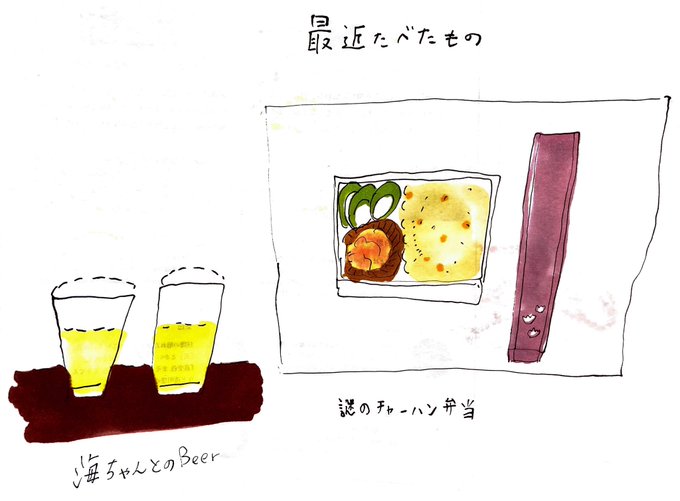 最近たべたもの
謎のチャーハン弁当
海ちゃんとのBeer